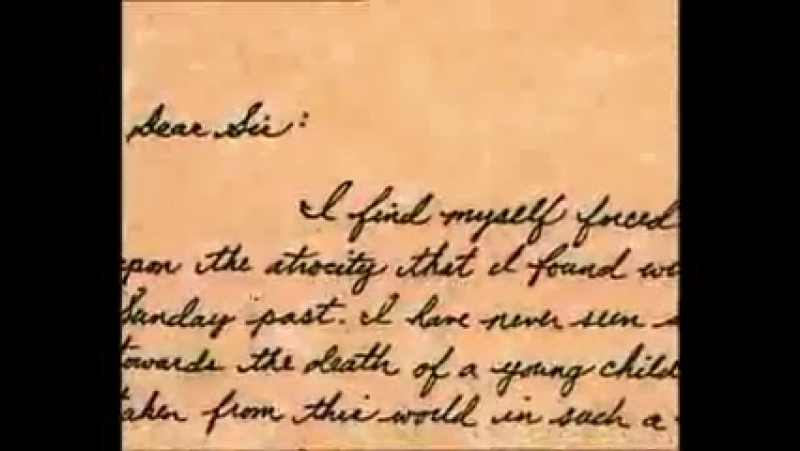 Dear Sir:
I find myself forced
upon the atrocity that I found
Sunday past. I have never seen
towards the death of a young child
taken from this world in such a